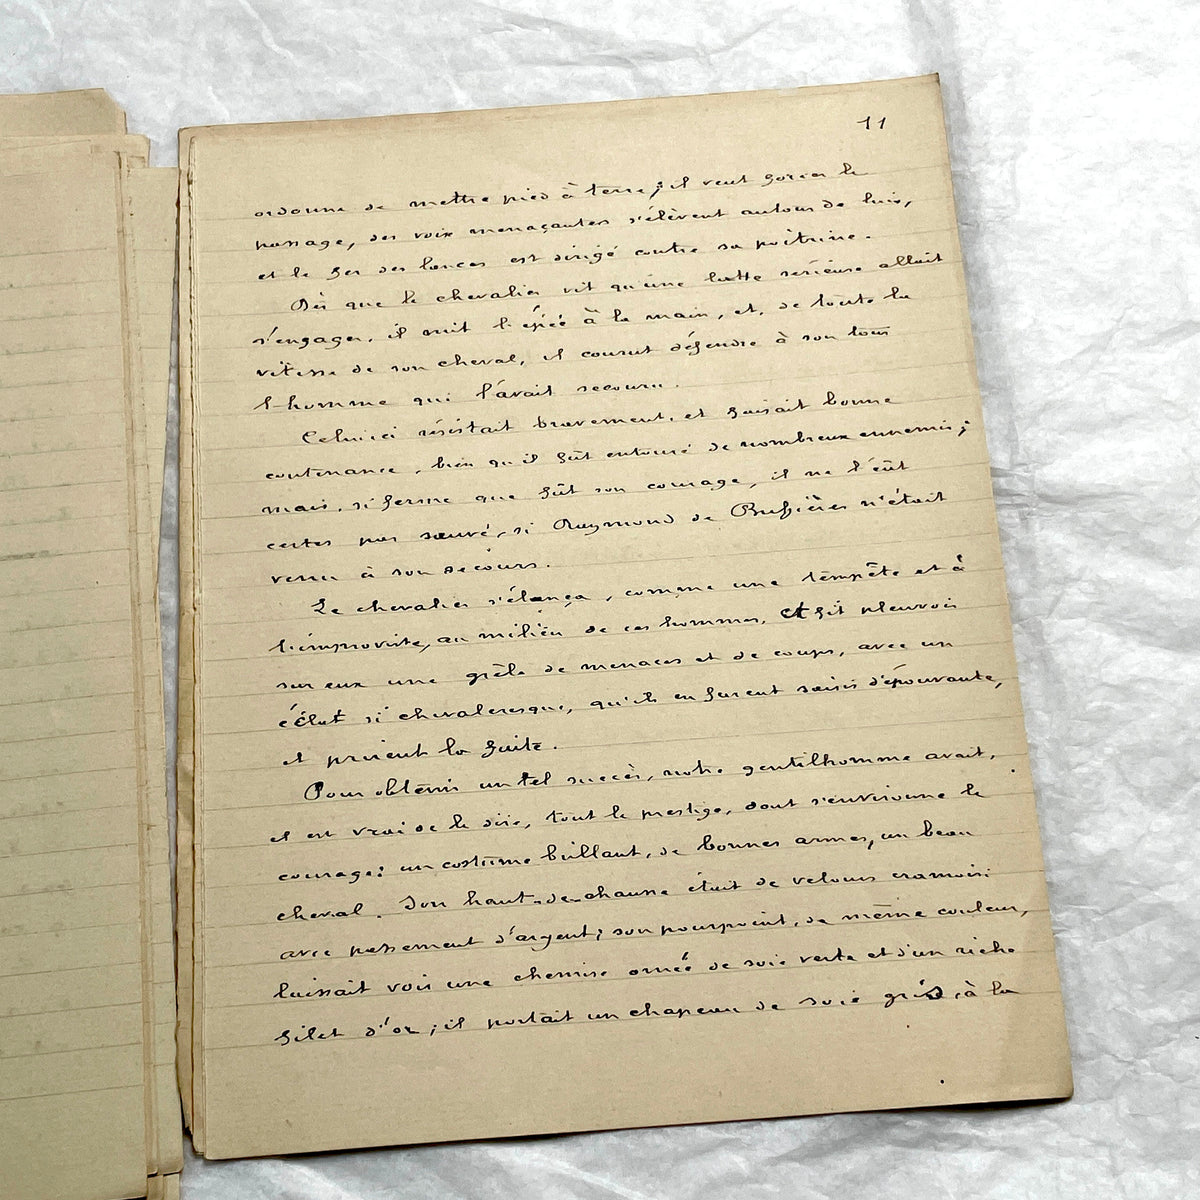 11
ordonne de mettre pied à terre; il veut forcer le
passage, des voix menaçantes s'élèvent autour de lui,
et le fer des lances est dirigé contre sa poitrine.
Dès que le chevalier vit qu'une lutte sérieuse allait
s'engager, il mit l'épée à la main, et, de toute la
vitesse de son cheval, il courut défendre à son tour
l'homme qui l'avait secouru.
Celui-ci résistait bravement, et faisait bonne
contenance, bien qu'il fût entouré de nombreux ennemis;
mais, si ferme que fût son courage, il ne l'eût
certes pas sauvé, si Raymond de Bussières n'était
venu à son secours.
Le chevalier s'élança, comme une tempête et à
l'improviste, au milieu de ces hommes, et fit pleuvoir
sur eux une grêle de menaces et de coups, avec un
éclat si chevaleresque, qu'ils en furent saisis d'épouvante,
et prirent la fuite.
Pour obtenir un tel succès, notre gentilhomme avait,
il est vrai de le dire, tout le prestige, dont s'environne le
courage: un costume brillant, de bonnes armes, un beau
cheval. Son haut-de-chausse était de velours cramoisi
avec passement d'argent; son pourpoint, de même couleur,
laissait voir une chemise ornée de soie verte et d'un riche
filet d'or; il portait un chapeau de soie gris, à la